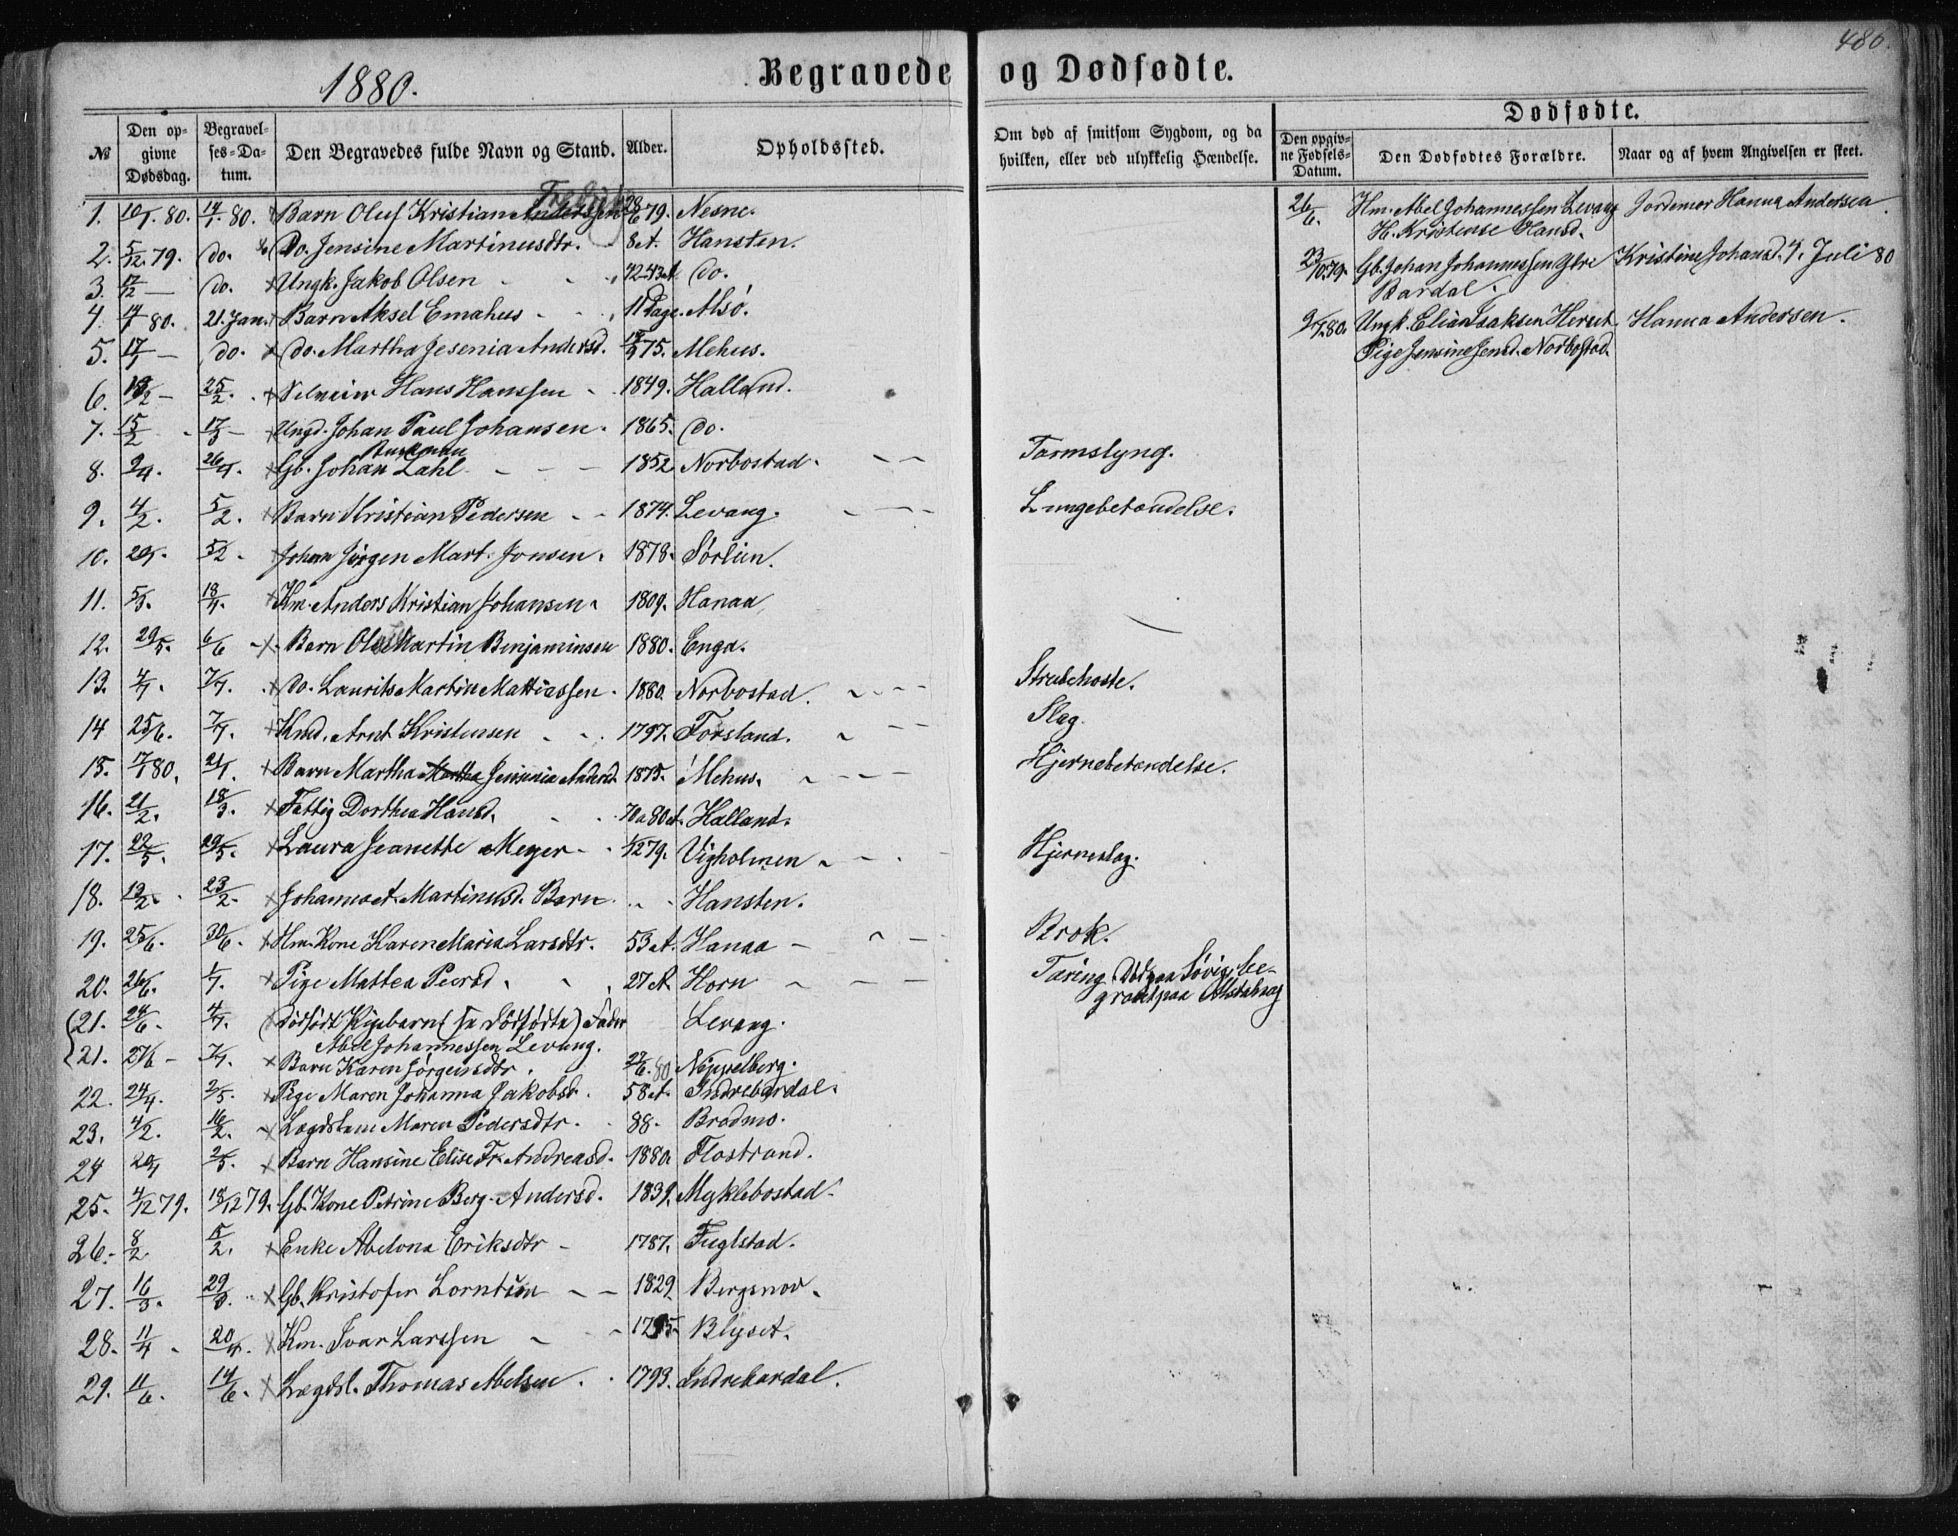 486.
1880.
Begravede og Dødfødte.
Dødfødte.
№
Den opgivne Dødsdag.
Begravelses-Datum.
Den Begravedes fulde Navn og Stand.
Alder.
Opholdssted.
Om død af smitsom Sygdom, og da hvilken, eller ved ulykkelig Hændelse.
Den opgivne Fødsels-Datum.
Den Dødfødtes Forældre.
Naar og af hvem Angivelsen er skeet.
1. 10/1 80. 14/1 80. Barn Oluf Kristian Anderssen 28/6 79. Nesne.
2. 5/12 79. do. Do. Jensine Martinusdtr. 8 A. Hansten.
3. 17/12 — do. Ungk. Jakob Olsen 42-43 A. do.
4. 14/1 80. 21. Jan. Barn Aksel Emahus 11 Dage. Alsø.
5. 17/1 — do. do. Martha Jesenia Andersd. 75. Mehus.
6. 25/2. Selveier Hans Hanssen 1849. Halland.
7. 15/2 17/3 — Ungd. Johan Paul Johansen. 1865. do.
8. 9/4. 26/4. Gb. Johan Zahl 1852. Norbostad. Tarmslyng.
9. 4/2. 5/2. Barn Kristian Pedersen 1874. Levang. Lungebetændelse.
10. 5/2. Johan Jørgen Mart. Jonsen. 1878. Sørlien.
11. 5/3. 18/4. Km. Anders Kristian Johansen. 1809. Hanaa
12. 29/5. 6/6 Barn Ole Martin Benjaminsen 1880. Enga.
13. 4/7. 7/7. do. Laurits Martin Mattiassen. 1880. Norbostad. Strubehoste.
14 25/6. 7/7. Kmd. Arnt Kristensen 1797. Forsland. Slag.
15. 17/1 80. 21/1. Barn Martha Jensenia Andersd. 1875. Mehus. Hjernebetændelse.
16. 21/2. 18/3. Fattig Dorthea Hansd. 70 a 80 A. Halland.
17. 22/5. 29/5. Laura Jeanette Meyer 1/12 79. Vigholmen Hjerneslag.
18. 13/2. 23/2. Johanna A. Martinusd. Barn Hansten.
19. 25/6. 30/6. Hm. Kone Karen Maria Larsdtr. 53 A. Hanaa Brok.
20. 26/6. 1/7. Pige Mattea Peersd. 27 A. Horn Tæring. Død paa Søvig, be-
gravet paa Alstahaug
21. 24/6. 4/7. Dødfødt Pigebarn (se Dødfødte) Fader Levang.
Abel Johannessen Levang.
21. 27/6 — 7/7. Barn Karen Jørgensdtr. 22/6 80 Nippelberg.
22. 24/4. 2/5. Pige Maren Johanna Jakobsd. 58 A. Indrebardal.
23. 4/2. 16/2. Lægdslem Maren Pedersdtr. 88. Bradmo.
24 2/5. Barn Hansine Elise Fr. Andreasd. 1880. Flostrand.
25. 4/12 79. 18/12 79. Gb. Kone Petrine Berg. Andersd. 1839. Myklebostad.
26. 8/2. 15/2. Enke Abelona Eriksdtr 1787. Fuglstad.
27. 16/3. 29/3. Gb. Kristofer Lorntsen 1829. Bergsnov.
28. 11/4. 20/4. Km. Ivar Larssen Blyset.
29. 11/6. 14/6. Lægdsl. Thomas Abelsen. 1793. Indrebardal.
26/6. Hm. Abel Johannessen Levang Jordemor Hanna Andersen.
H. Kristense Hansd.
23/10 79. Gb. Johan Johannessen Ytre Kristine Johansd. 4. Juli 80
Bardal.
9/7 80. Ungk. Elias Isaksen Herset Hanna Andersen.
Pige Jensine Jensd. Norbostad.